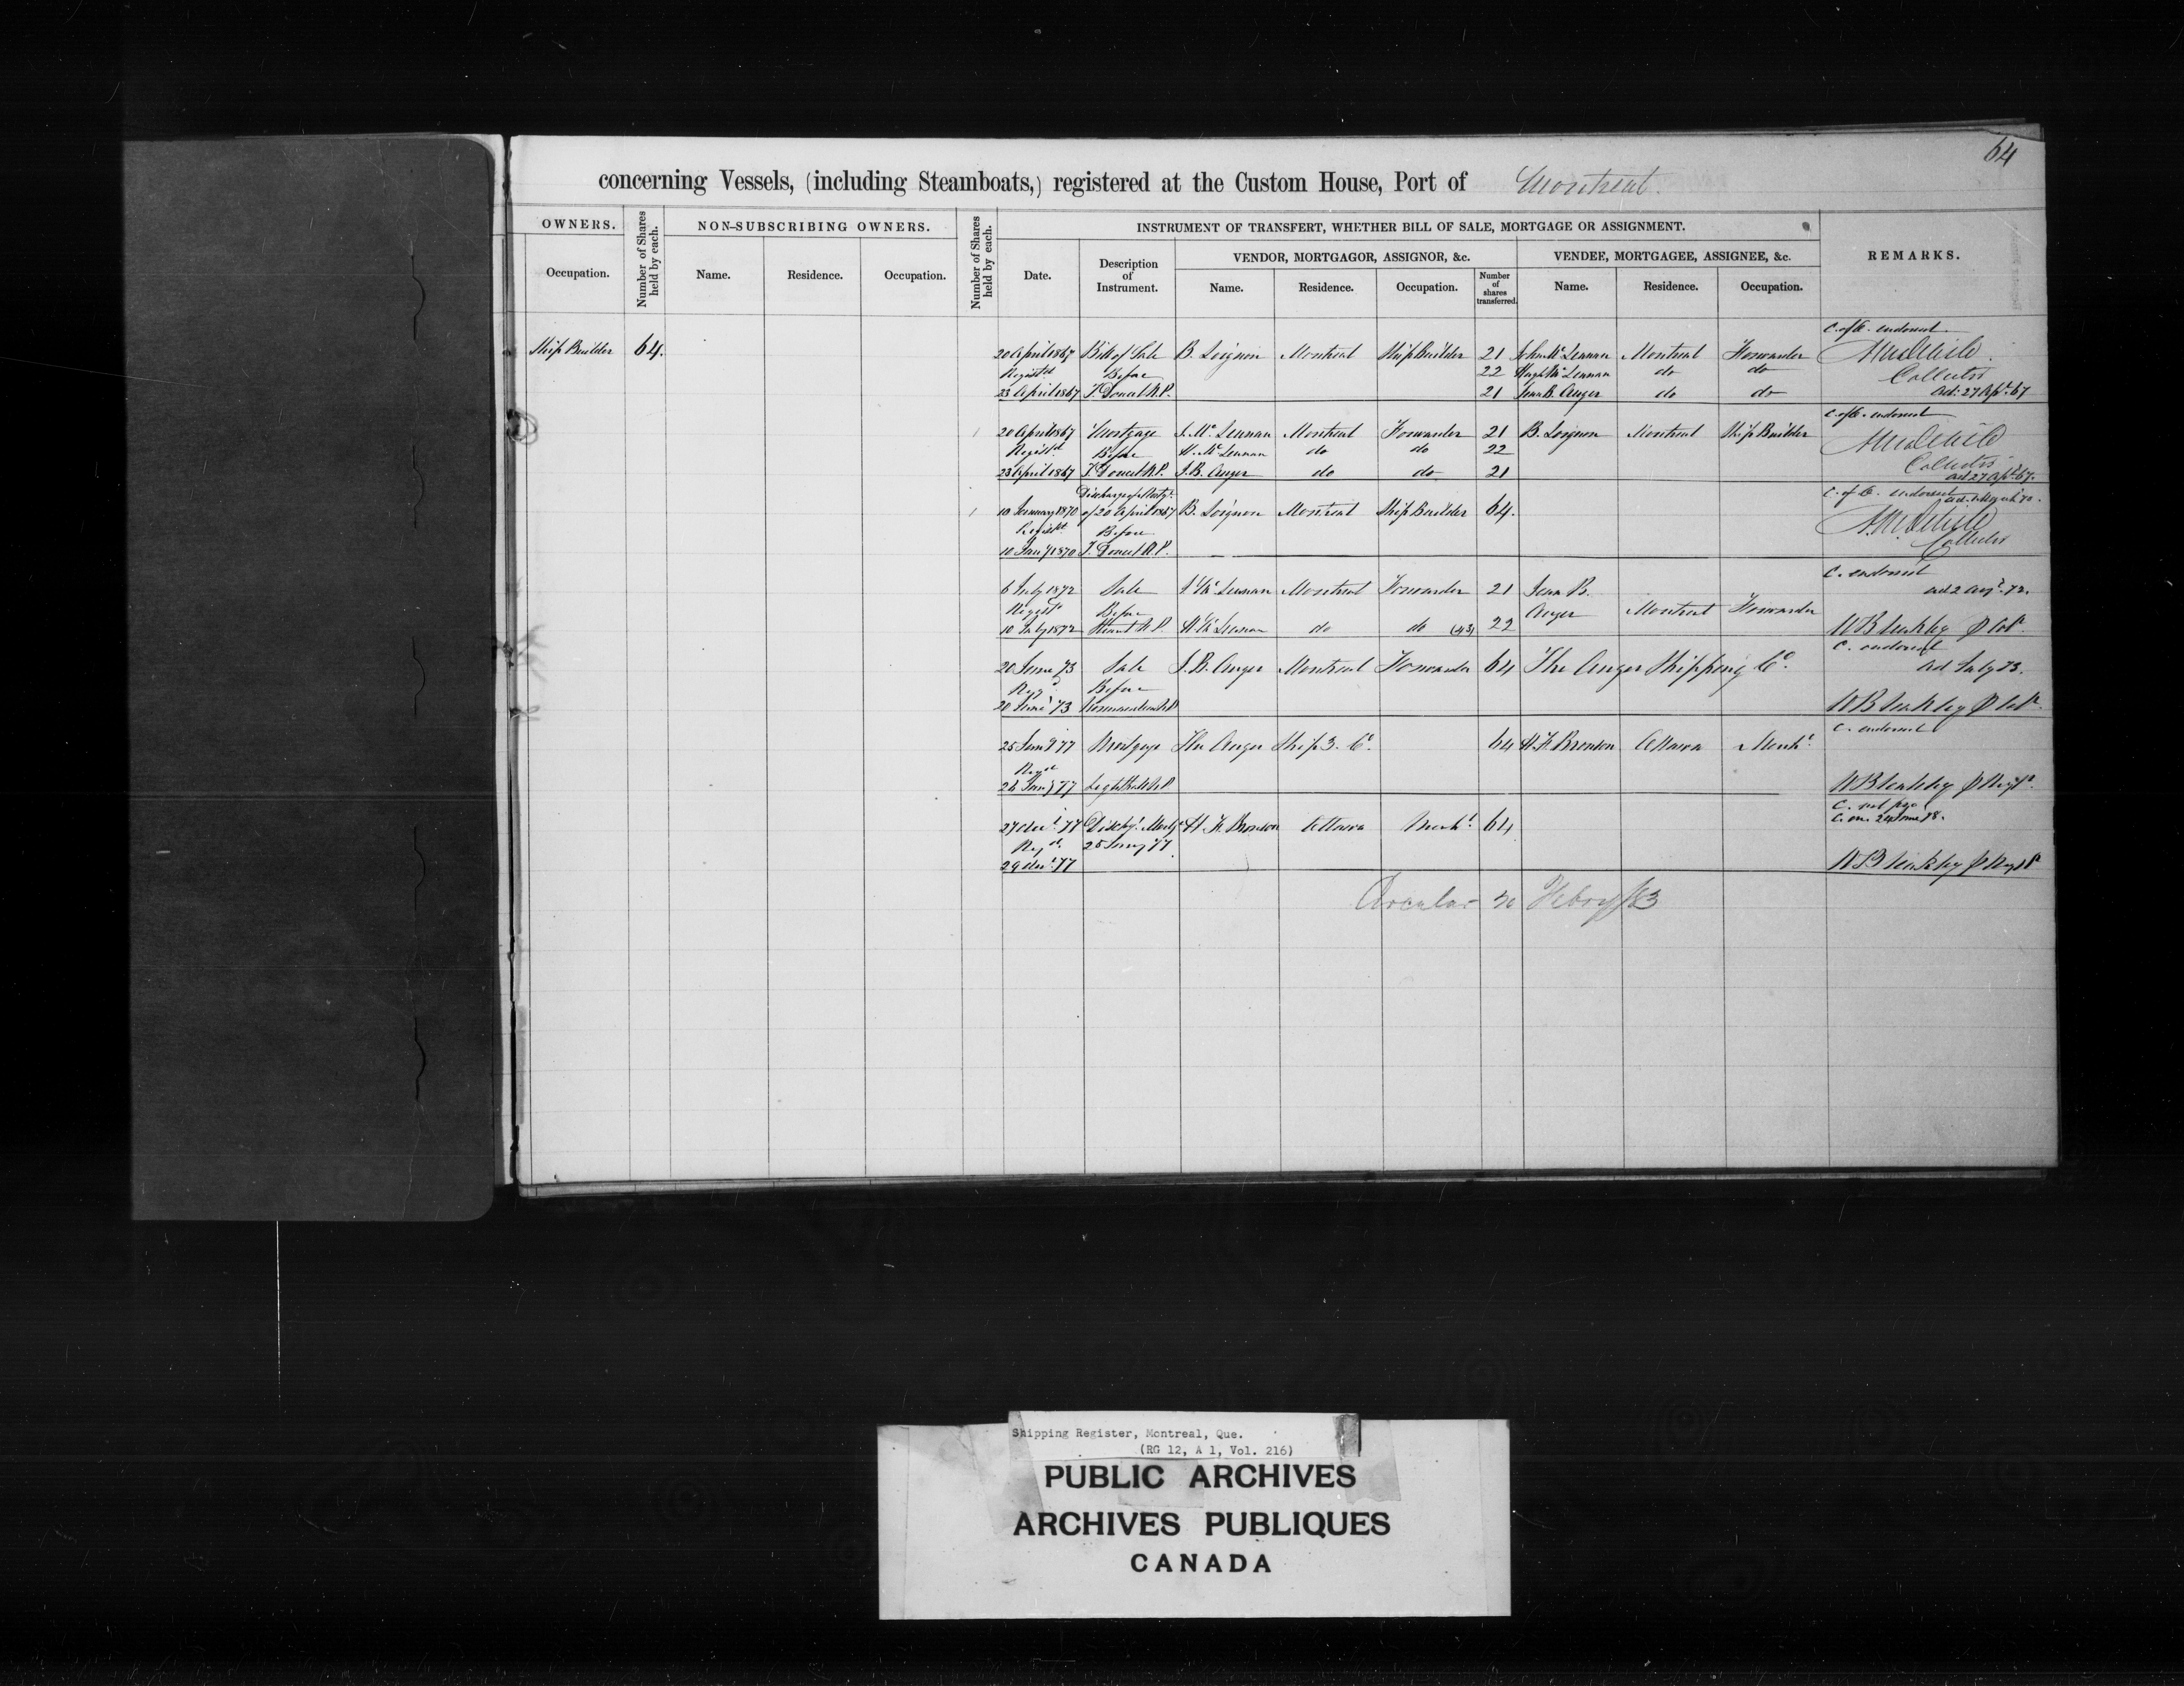 64
concerning Vessels, (including Steamboats,) registered at the Custom House, Port of Montreal.
OWNERS.
Number of Shares held by each.
NON-SUBSCRIBING OWNERS.
Number of Shares held by each.
INSTRUMENT OF TRANSFERT, WHETHER BILL OF SALE, MORTGAGE OR ASSIGNMENT.
REMARKS.
Occupation.
Name. Residence. Occupation.
Date.
Description of Instrument.
VENDOR, MORTGAGOR, ASSIGNOR, &c.
Name. Residence. Occupation.
Number of shares transferred.
VENDEE, MORTGAGEE, ASSIGNEE, &c.
Name. Residence. Occupation.
C. of O. endorsed.
Ship Builder 64. 20 April 1867 Bill of Sale B. Loignon Montreal Ship Builder 21 John McLennan Montreal Forwarder
Registd Before 22 Hugh McLennan do do Collector
23 April 1867 T. Doucet N.P. 21 Jean B. Auger do do ad. 27 Apl. 67
endorsed
20 April 1867 Mortgage J. Mc Lennan Montreal Forwarder 21 B. Loignon Montreal Ship Builder
Registd Before H. Mc Lennan do do 22
23 April 1867 T. Doucet N.P. J. B. Auger do do 21 Collector
ad 27 Apl 67.
Discharge of Mortge endorsed
10 January 1870 of 20 April 1867 B. Loignon Montreal Ship Builder 64.
Registd Before Collector
10 Jany 1870 T. Doucet N.P.
C. endorsed
6 July 1872 Sale J Mc Lennan Montreal Forwarder 21 Jean B. ad 2 Augt. 72.
Registd Before Auger Montreal Forwarder
10 July 1872 N.P. H. Mc Lennan do do (43) 22
C. endorsed
20 June 73 Sale J. B. Auger Montreal Forwarder 64 The Auger Shipping Co. ad July 73.
Regd Before
20 June 73
C. endorsed
25 Jany 77 Mortgage The Auger Ship'g. Co. 64 H. F. Bronson Ottawa Mercht
Regd
26 Jany 77 Lighthall N.P.
27 Decr. 77 Dischg. Mortge H. F. Bronson Ottawa Mercht. 64
Regd. 25 Jany 77
29 Decr. 77
Circular 20 Febry/83
Shipping Register, Montreal, Que.
(RG 12, A 1, Vol. 216)
PUBLIC ARCHIVES
ARCHIVES PUBLIQUES
CANADA